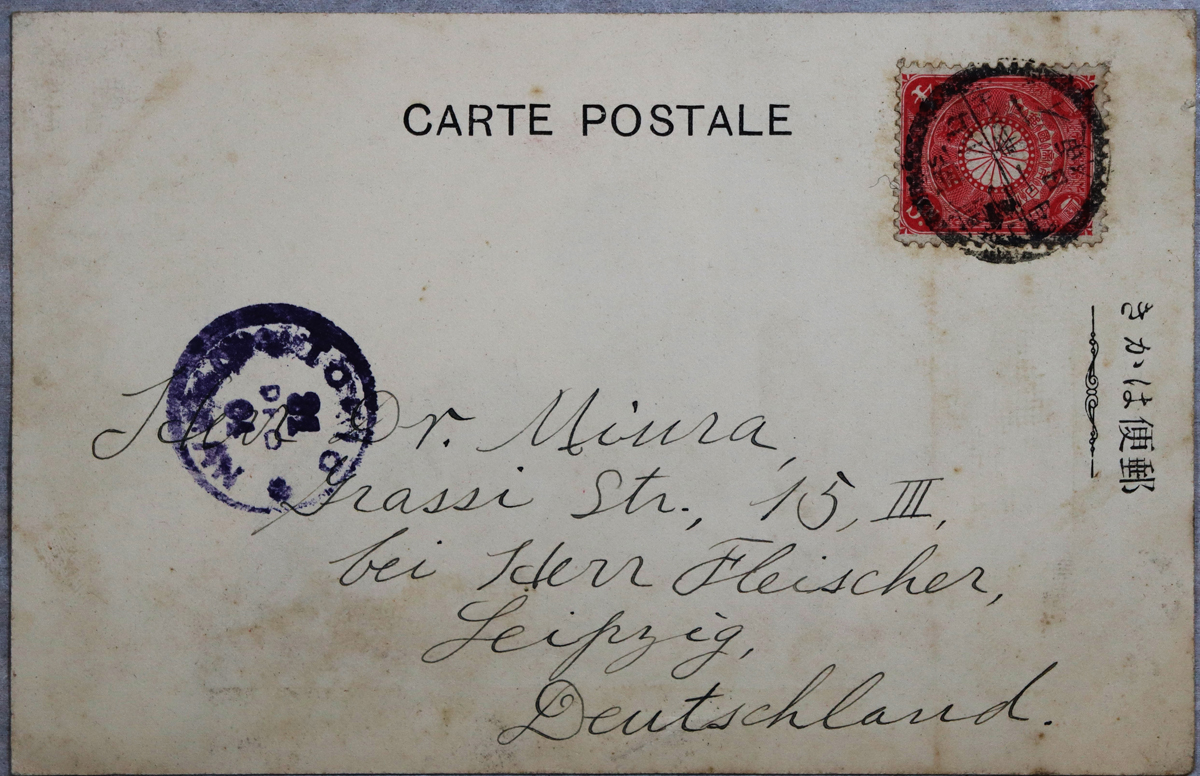 CARTE POSTALE
きかは便郵
Herr Dr. Miura,
Grassi Str., 15, III,
bei Herr Fleischer,
Leipzig,
Deutschland.